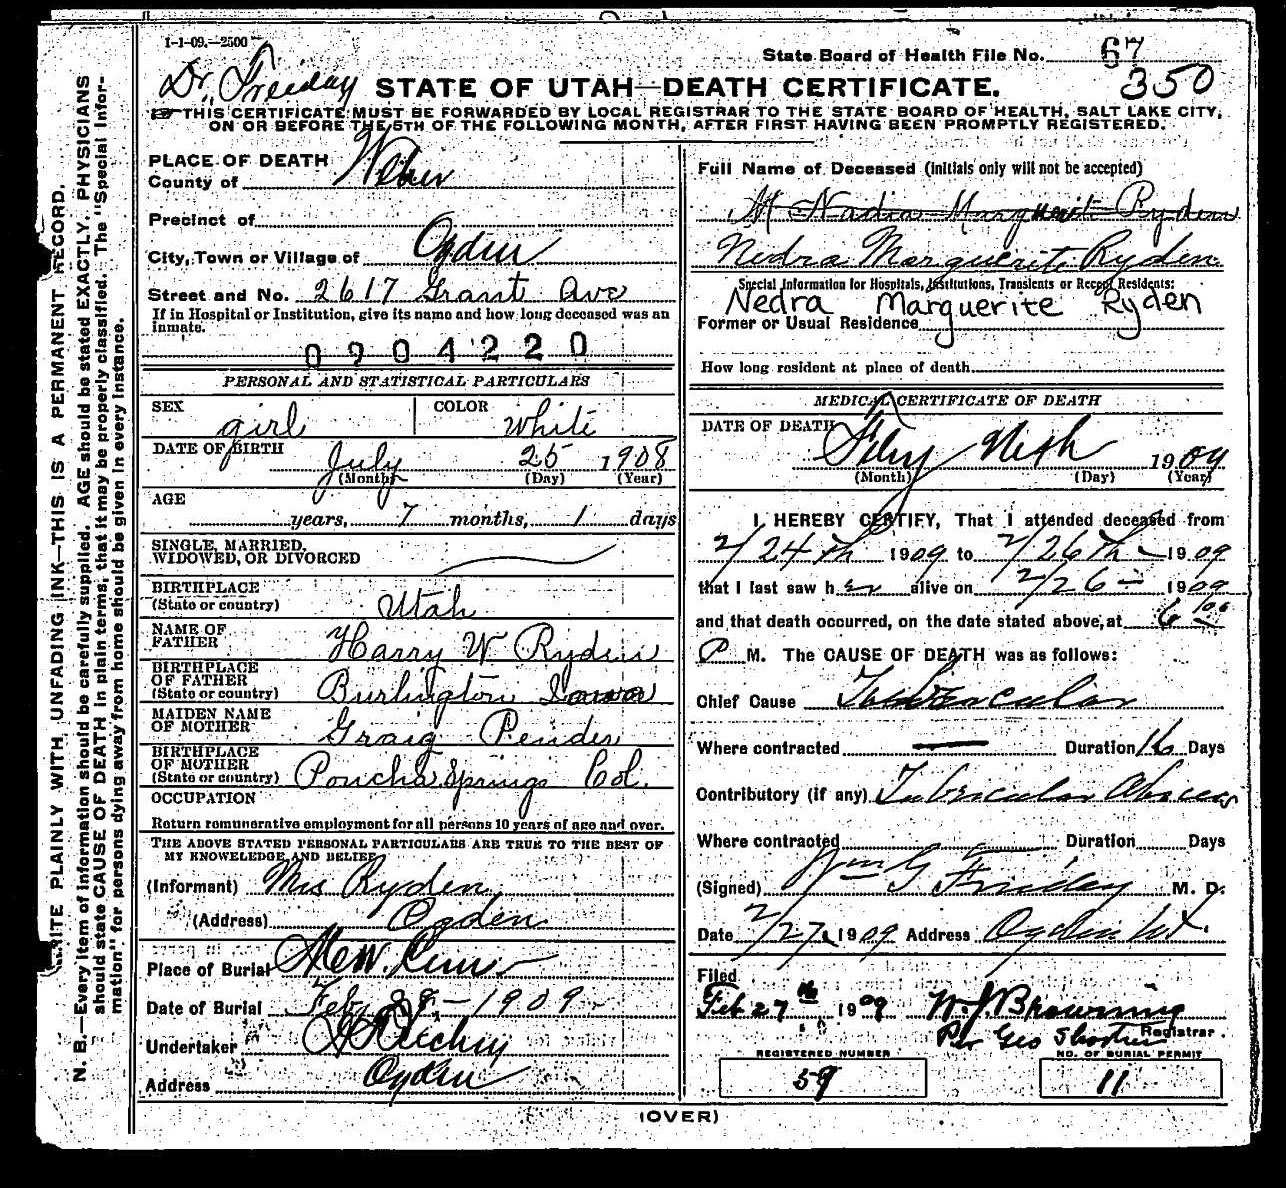 1-1-09.—2500
State Board of Health File No. 67
350
Dr. Freiday
STATE OF UTAH—DEATH CERTIFICATE.
THIS CERTIFICATE MUST BE FORWARDED BY LOCAL REGISTRAR TO THE STATE BOARD OF HEALTH, SALT LAKE CITY,
ON OR BEFORE THE 5TH OF THE FOLLOWING MONTH, AFTER FIRST HAVING BEEN PROMPTLY REGISTERED.
WRITE PLAINLY WITH UNFADING INK—THIS IS A PERMANENT RECORD.
N. B.—Every item of information should be carefully supplied. AGE should be stated EXACTLY. PHYSICIANS
should state CAUSE OF DEATH in plain terms, that it may be properly classified. The "Special Infor-
mation" for persons dying away from home should be given in every instance.
PLACE OF DEATH
County of Weber
Precinct of
City, Town or Village of Ogden
Street and No. 2617 Grant Ave
If in Hospital or Institution, give its name and how long deceased was an
inmate.
0904220
PERSONAL AND STATISTICAL PARTICULARS
SEX girl COLOR white
DATE OF BIRTH July 25 1908
(Month) (Day) (Year)
AGE
years, 7 months, 1 days
SINGLE, MARRIED,
WIDOWED, OR DIVORCED
BIRTHPLACE
(State or country) Utah
NAME OF
FATHER Harry W Ryden
BIRTHPLACE
OF FATHER
(State or country) Burlington Iowa
MAIDEN NAME
OF MOTHER Pender
BIRTHPLACE
OF MOTHER
(State or country) Poncha Springs Col.
OCCUPATION
Return remunerative employment for all persons 10 years of age and over.
THE ABOVE STATED PERSONAL PARTICULARS ARE TRUE TO THE BEST OF
MY KNOWELEDGE AND BELIEF
(Informant) Mrs Ryden
(Address) Ogden
Place of Burial
Date of Burial Feb 1909
Undertaker
Address Ogden
Full Name of Deceased (initials only will not be accepted)
M Nadia Marguerite Ryden
Nedra Marguerite Ryden
Special Information for Hospitals, Institutions, Transients or Recent Residents:
Nedra Marguerite Ryden
Former or Usual Residence
How long resident at place of death
MEDICAL CERTIFICATE OF DEATH
DATE OF DEATH 1909
(Month) (Day) (Year)
I HEREBY CERTIFY, That I attended deceased from
2/24th 1909 to 2/26th 1909
that I last saw her alive on 2/26 1909
and that death occurred, on the date stated above, at 6
P M. The CAUSE OF DEATH was as follows:
Chief Cause Tubercular
Where contracted — Duration 16 Days
Contributory (if any) Tubercular Abscess
Where contracted Duration Days
(Signed) Wm G Freiday M. D.
Date 2/27 1909 Address Ogden Ut.
Filed
Feb 27th 1909 W. J. Browning
Registrar
Per Geo
REGISTERED NUMBER
59
NO. OF BURIAL PERMIT
11
(OVER)